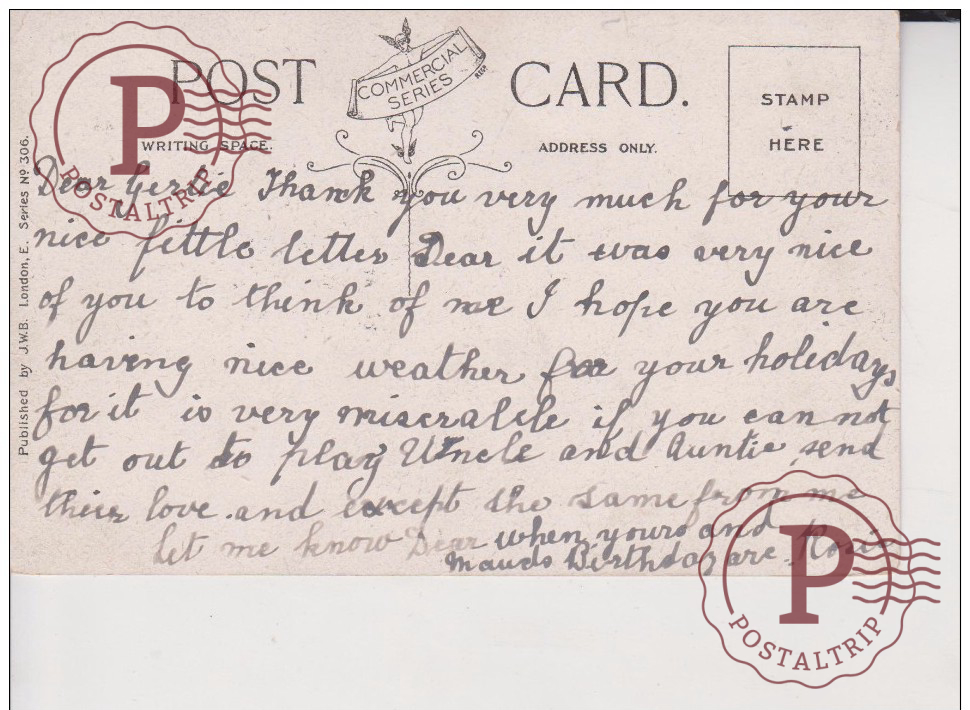 POST CARD.
COMMERCIAL
SERIES
STAMP
HERE
WRITING SPACE.
ADDRESS ONLY.
Published by J.W.B. London, E. Series Nº 306.
Dear Gertie Thank you very much for your
nice little letter Dear it was very nice
of you to think of me I hope you are
having nice weather for your holidays
for it is very miseralble if you can not
get out to play Uncle and Auntie send
their love and except the same from me
let me know Dear when yours and
Mauds Birthday are. Rosie
P
POSTALTRIP
P
POSTALTRIP